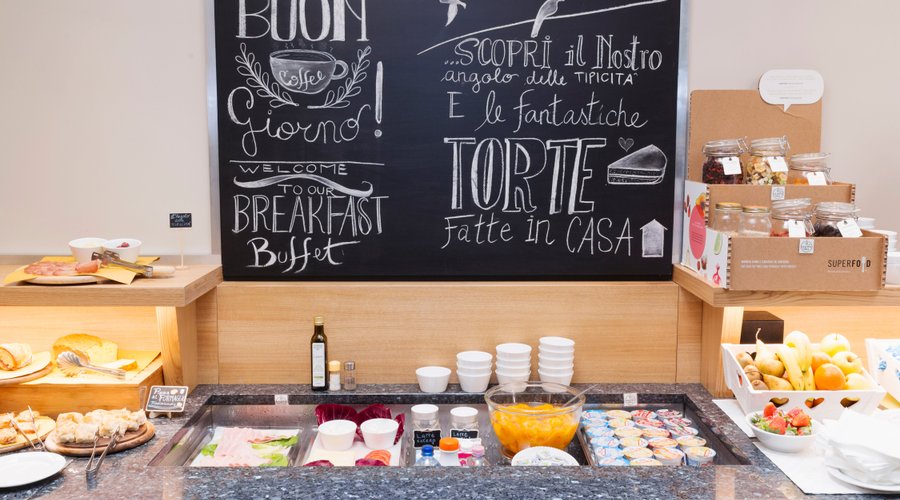 BUON
Coffee
Giorno!
WELCOME
TO OUR
BREAKFAST
Buffet
...SCOPRi il Nostro
angolo delle TIPICITA'
E le fantastiche
TORTE
Fatte in CASA
SUPERFOOD
LATTE
LATTE